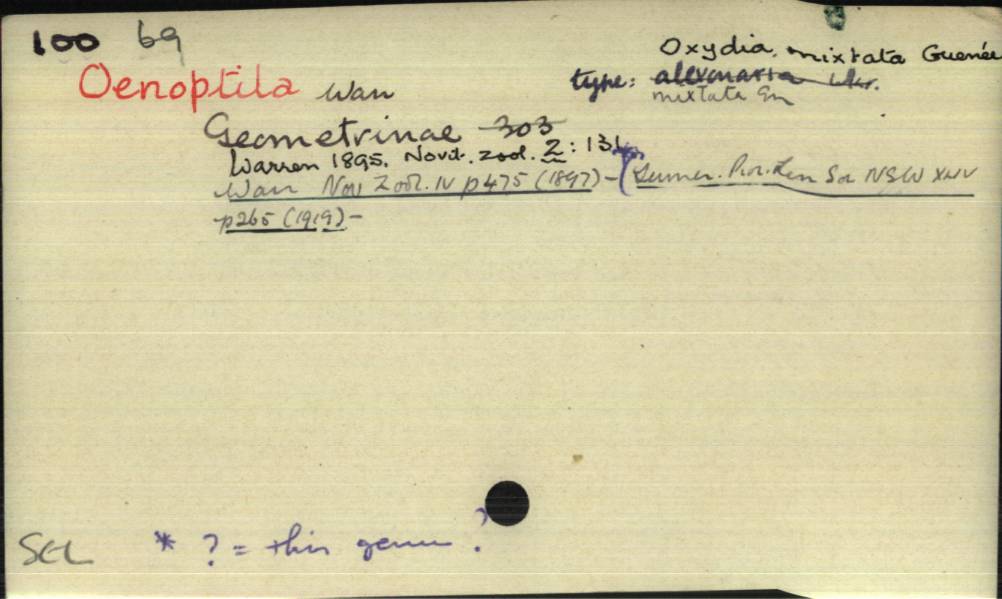 100 69
Oxydia, mixtata Guenée
Oenoptila Warr type: alexonaria Wkr.
mixtata Gn
Geometrinae 303
Warren 1895. Novit. zool. 2: 131
Warr Nov Zool. IV p475 (1897) — ( Turner. Pro. Linn Soc NSW XLIV
p265 (1919) —
SCL * ? = this genus ?